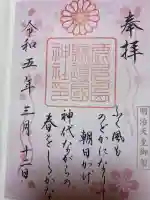 奉拝
明治天皇御製
ふく風も
のどかになりて
朝日かげ
神代ながらの
春をしるかな
護國
神社印
令和五年三月十二日